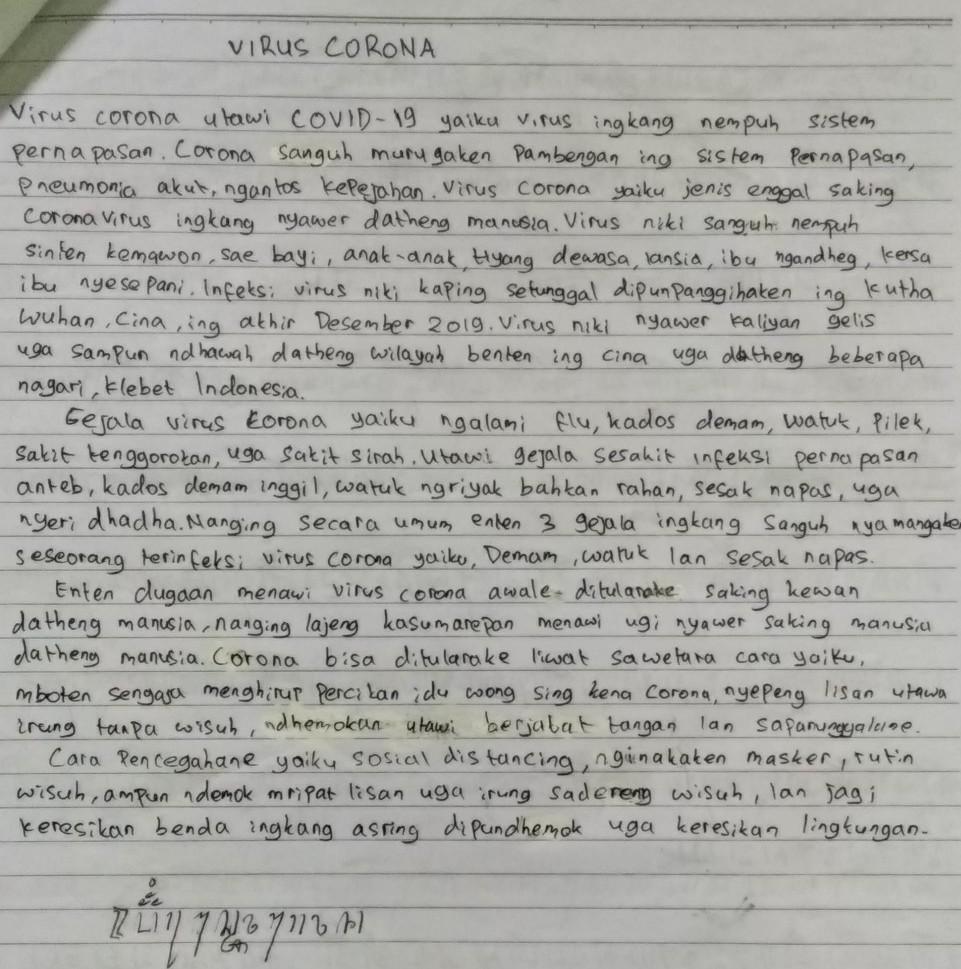 VIRUS CORONA
Virus corona utawi COVID-19 yaiku virus ingkang nempuh sistem
pernapasan. Corona sanguh murugaken Pambengan ing sistem Pernapasan,
Pneumonia akut, ngantos kepejahan. Virus corona yaiku jenis enggal saking
coronavirus ingkang nyawer datheng manusia. Virus niki sanguh nempuh
sinten kemawon, sae bayi, anak-anak, tiyang dewasa, lansia, ibu ngandheg, kersa
ibu nyesepani. Infeksi virus niki kaping setunggal dipunpanggihaken ing kutha
wuhan, Cina, ing akhir Desember 2019. Virus niki nyawer kaliyan gelis
uga sampun ndhawah datheng wilayah benten ing cina uga datheng beberapa
nagari, klebet Indonesia.
Gejala virus corona yaiku ngalami flu, kados demam, watuk, pilek,
sakit tenggorokan, uga sakit sirah. Utawi gejala sesakit infeksi pernapasan
anteb, kados demam inggil, watuk ngriyak bahkan rahan, sesak napas, uga
nyeri dhadha. Nanging secara umum enten 3 gejala ingkang sanguh nyamangake
seseorang terinfeksi virus corona yaiku, Demam, watuk lan sesak napas.
Enten dugaan menawi virus corona awale ditularake saking kewan
datheng manusia, nanging lajeng kasumarepan menawi ugi nyawer saking manusia
datheng manusia. Corona bisa ditularake liwat sawetara cara yaiku,
mboten sengaja menghirup percikan idu wong sing kena corona, nyepeng lisan utawa
irung tanpa wisuh, ndhemokan utawi berjabat tangan lan sapanunggalane.
Cara Pencegahane yaiku sosial distancing, nginakaken masker, rutin
wisuh, ampun ndemok mripat lisan uga irung sadereng wisuh, lan jagi
keresikan benda ingkang asring dipundhemok uga keresikan lingkungan.